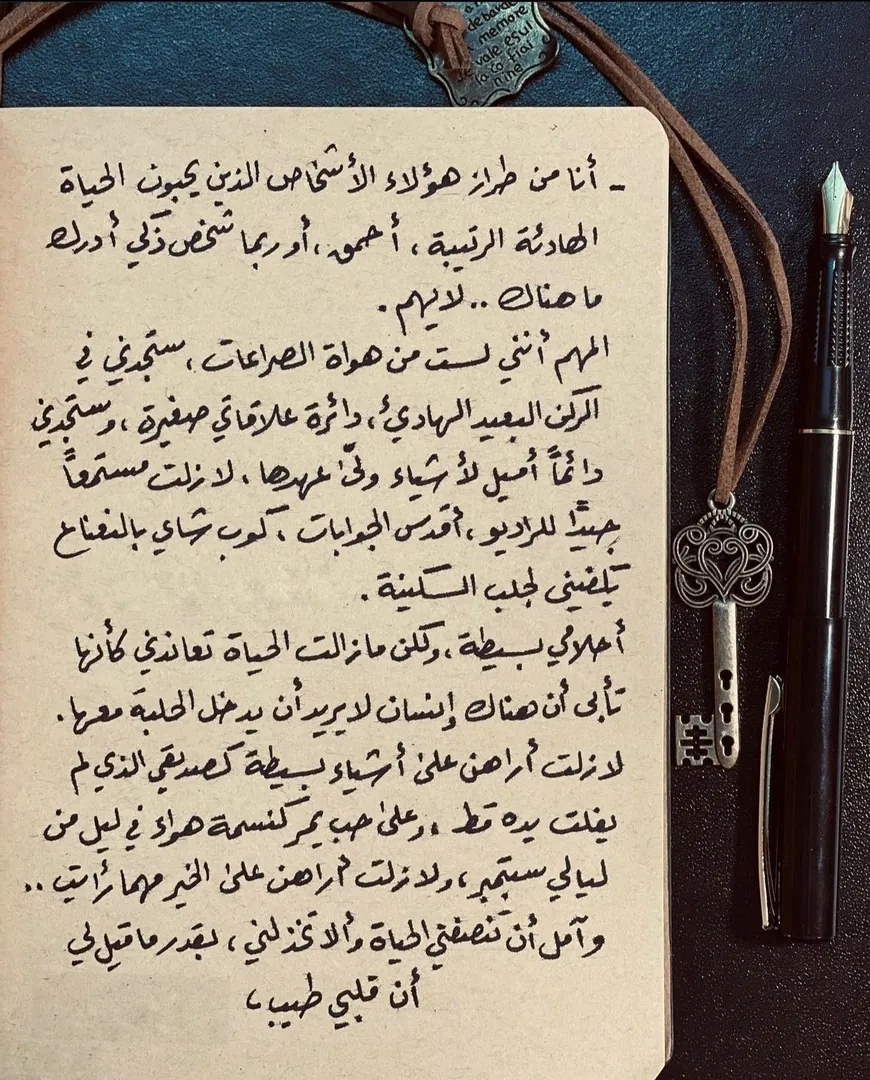 de barda
a memore
de vale esul
ta co fiat
nine
- أنا من طراز هؤلاء الأشخاص الذين يحبون الحياة
الهادئة الرتيبة، أحمق، أو ربما شخص ذكي أدرك
ما هناك .. لا يهم.
المهم أنني لست من هواة الصراعات، ستجدني في
الركن البعيد الهاديء، دائرة علاقاتي صغيرة، وستجدني
دائماً أميل لأشياء ولّى عهدها، لازلت مستمعاً
جيدًا للراديو، أقدس الجوابات، كوب شاي بالنعناع
يكفيني لجلب السكينة.
أحلامي بسيطة، ولكن مازالت الحياة تعاندني كأنها
تأبى أن هناك إنسان لا يريد أن يدخل الحلبة معها.
لازلت أراهن على أشياء بسيطة كصديقي الذي لم
يفلت يده قط، وعلى حب يمر كنسمة هواء في ليل من
ليالي سبتمبر، ولازلت أراهن على الخير مهما رأيت ..
وآمل أن تنصفني الحياة وألا تخذلني، بقدر ما قيل لي
أن قلبي طيب،